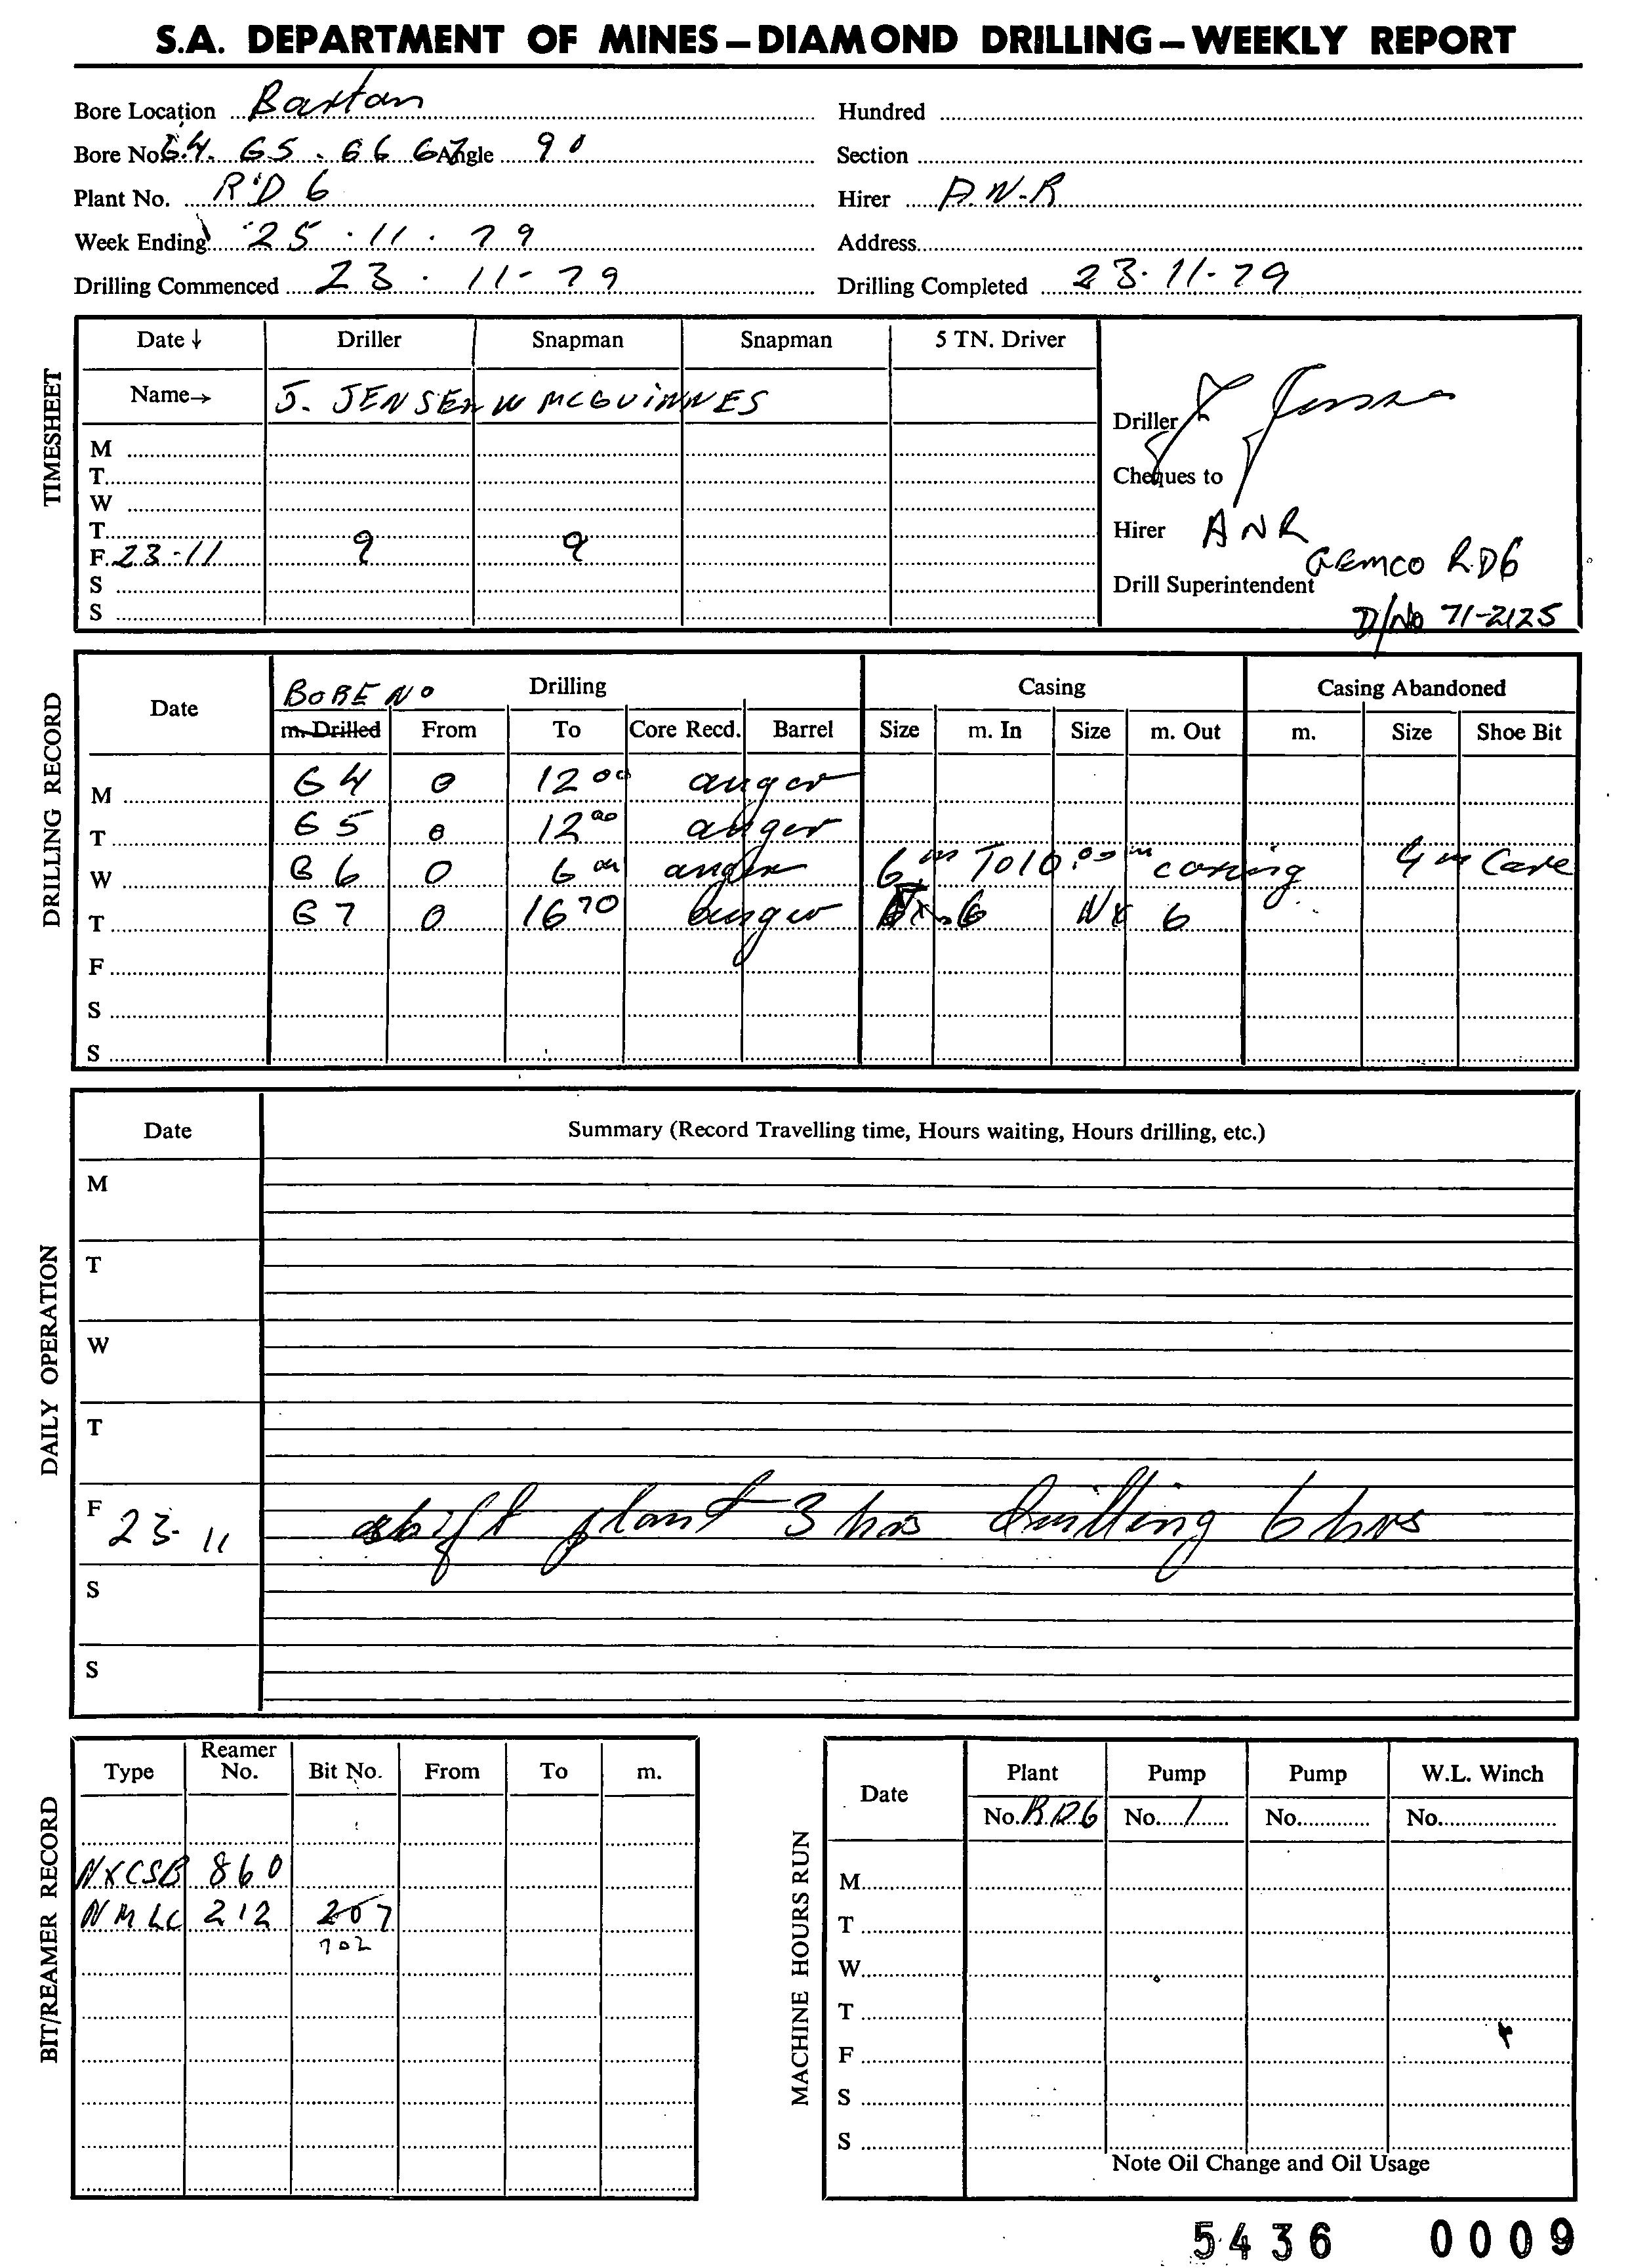 S.A. DEPARTMENT OF MINES – DIAMOND DRILLING – WEEKLY REPORT
Bore Location Barton Hundred
Bore No. 64. 65. 66 67 Angle 90 Section
Plant No. RD 6 Hirer A.N.R
Week Ending 25.11.79 Address
Drilling Commenced 23.11-79 Drilling Completed 23.11-79
TIMESHEET
Date ↓ Driller Snapman Snapman 5 TN. Driver
Name→ J. JENSEN W MCGUINNES
M
T
W
T
F 23-11 9 9
S
S
Driller J Jensen
Cheques to
Hirer ANR
GEMCO RD6
Drill Superintendent
D/No 71-2125
DRILLING RECORD
Date BORE NO Drilling Casing Casing Abandoned
m. Drilled From To Core Recd. Barrel Size m. In Size m. Out m. Size Shoe Bit
M 64 0 12 00 auger
T 65 0 12 00 auger
W 66 0 6 00 auger 6 m To 10.00 m coring 4 m Core
T 67 0 16 70 auger NX 6 NX 6
F
S
S
DAILY OPERATION
Date Summary (Record Travelling time, Hours waiting, Hours drilling, etc.)
M
T
W
T
F 23-11 shift plant 3 hrs drilling 6 hrs
S
S
BIT/REAMER RECORD
Type Reamer No. Bit No. From To m.
NXCSB 860
NMLC 212 207
702
MACHINE HOURS RUN
Date Plant Pump Pump W.L. Winch
No. RD6 No. 1 No. No.
M
T
W
T
F
S
S
Note Oil Change and Oil Usage
5436 0009